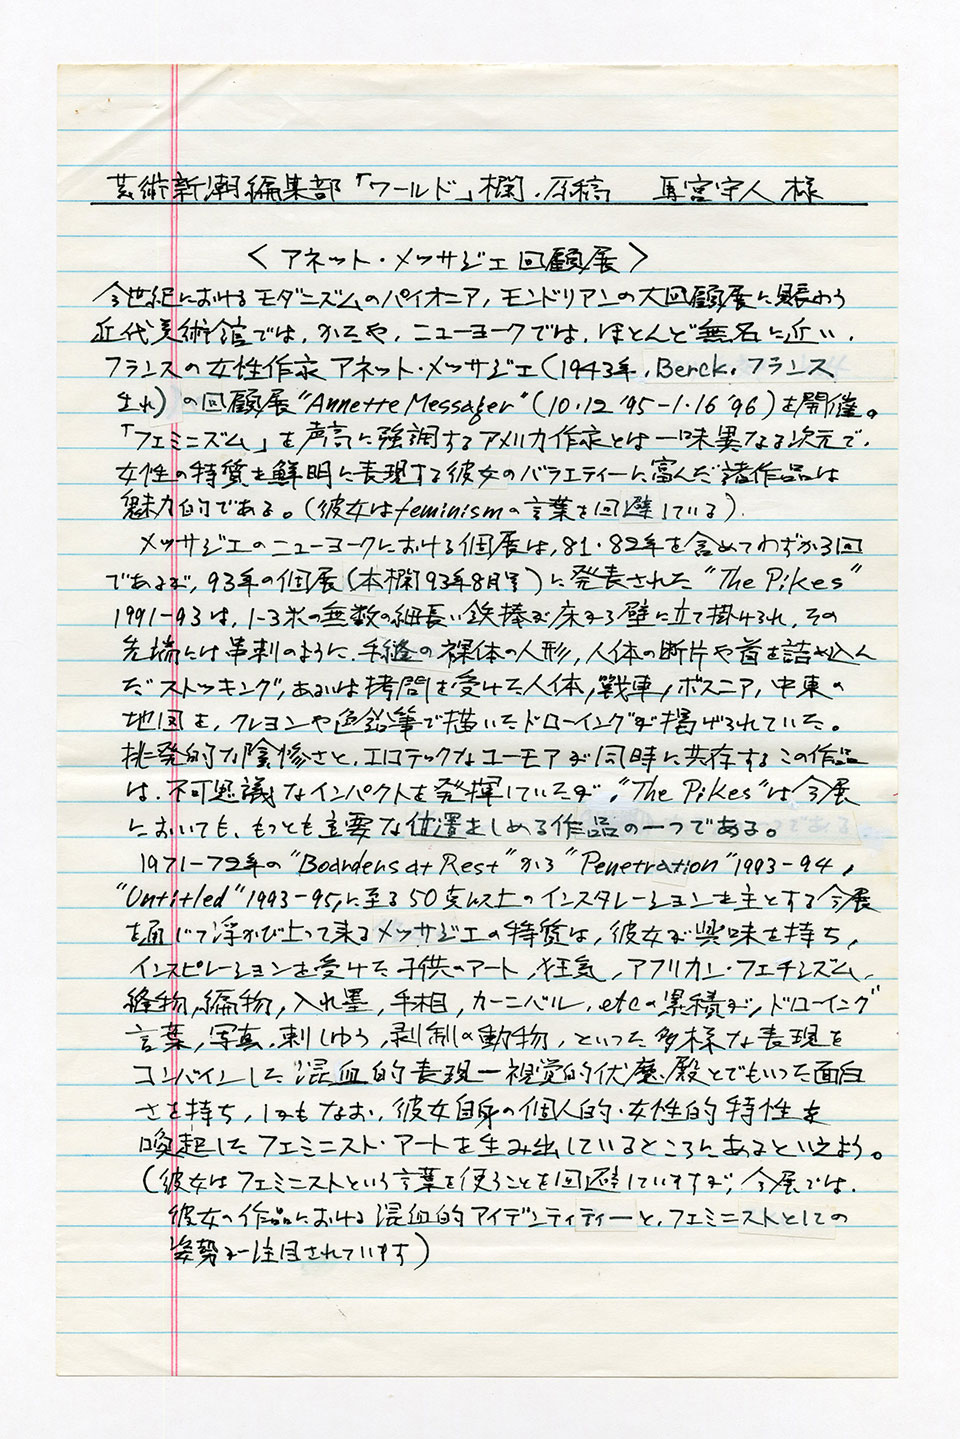 芸術新潮編集部「ワールド」欄．原稿　馬宮守人 様
〈アネット・メッサジェ回顧展〉
今世紀におけるモダニズムのパイオニア，モンドリアンの大回顧展に賑わう
近代美術館では，かたや，ニューヨークでは，ほとんど無名に近い，
フランスの女性作家 アネット・メッサジェ（1943年，Berck，フランス
生れ）の回顧展“Annette Messager”（10・12 '95－1・16 '96）を開催。
「フェミニズム」を声高に強調するアメリカ作家とは一味異なる次元で，
女性の特質を鮮明に表現する彼女のバラエティーに富んだ諸作品は
魅力的である。（彼女はfeminismの言葉を回避している）．
メッサジェのニューヨークにおける個展は，81・82年を含めてわずか3回
であるが，93年の個展（本欄93年8月号）に発表された“The Pikes”
1991－93は，1－3米の無数の細長い鉄棒が床から壁に立て掛けられ，その
先端には串刺のように，手縫の裸体の人形，人体の断片や首を詰め込ん
だストッキング，あるいは拷問を受けた人体，戦車，ボスニア，中東の
地図を，クレヨンや色鉛筆で描いたドローイングが掲げられていた。
挑発的な陰惨さと，エロテックなユーモアが同時に共存するこの作品
は，不可思議なインパクトを発揮していたが，“The Pikes”は今展
においても，もっとも主要な位置をしめる作品の一つである。
1971－72年の“Boarders at Rest”から“Penetration”1993－94，
“Untitled”1993－95，に至る50点以上のインスタレーションを主とする今展
を通じて浮かび上って来るメッサジェの特質は，彼女が興味を持ち，
インスピレーションを受けた子供のアート，狂気，アフリカン・フェチシズム，
縫物，編物，入れ墨，手相，カーニバル，etcの累積が，ドローイング
言葉，写真，刺しゅう，剥制の動物，といった多様な表現を
コンバインした混血的表現－視覚的伏魔殿とでもいった面白
さを持ち，しかもなお，彼女自身の個人的・女性的特性を
喚起したフェミニスト・アートを生み出しているところにあるといえよう。
（彼女はフェミニストという言葉を使うことを回避していますが，今展では，
彼女の作品における混血的アイデンティティーと，フェミニストとしての
姿勢が注目されています）